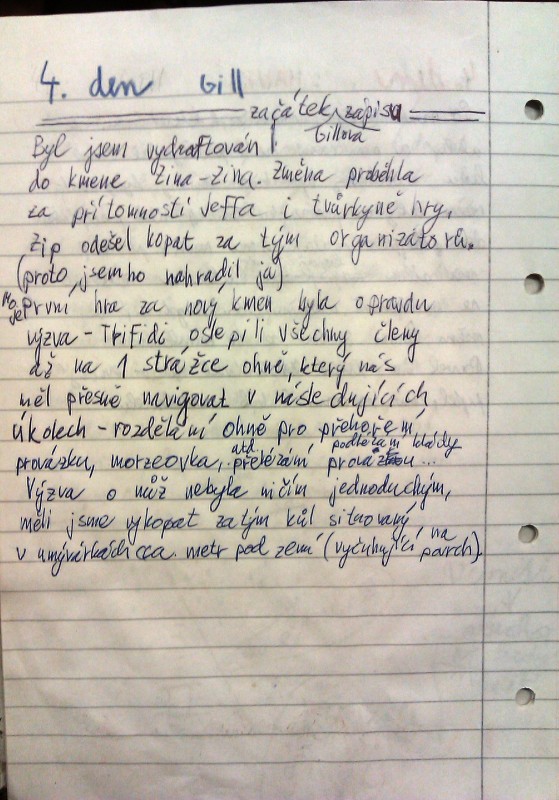 4. den Gill
začátek zápisu
Gillova
Byl jsem vydraftován
do kmene Zina-Zina. Změna proběhla
za přítomnosti Jeffa i tvůrkyně hry.
Zip odešel kopat za tým organizátorů.
(proto jsem ho nahradil já)
Moje první hra za nový kmen byla opravdu
výzva - Trifidi oslepili všechny členy
až na 1 strážce ohně, který nás
měl přesně navigovat v následujících
úkolech - rozdělání ohně pro přehoření
provázku, morzeovka, přelézání provázkou...
atd. podlézání klády
Výzva o nůž nebyla ničím jednoduchým,
měli jsme vykopat za tým kůl situovaný
v umývárkách cca. metr pod zemí (vyčuhující na povrch).